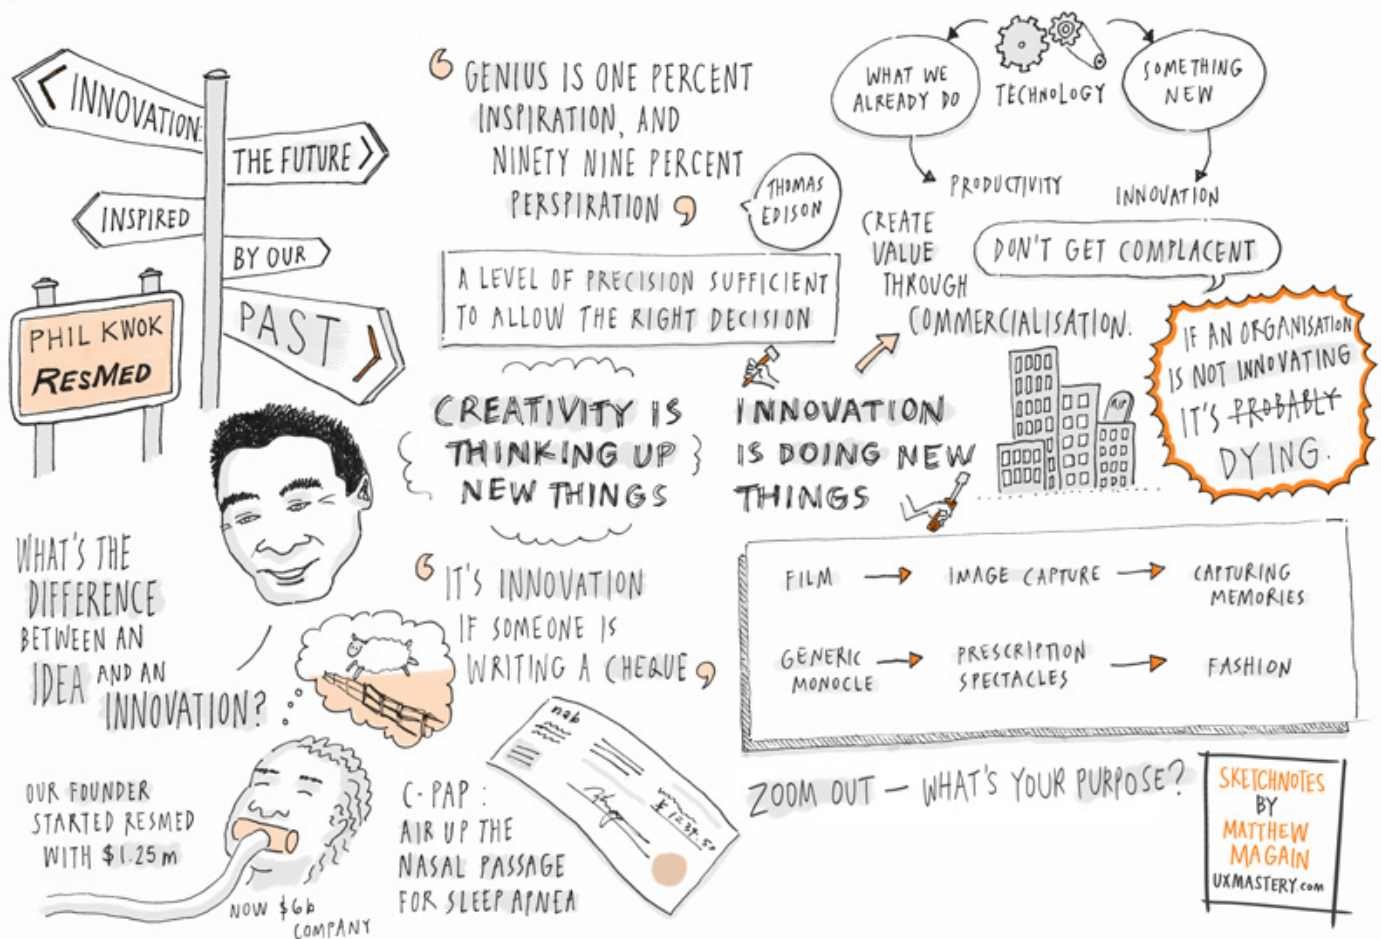 INNOVATION:
THE FUTURE
INSPIRED
BY OUR
PAST
PHIL KWOK
RESMED
WHAT'S THE
DIFFERENCE
BETWEEN AN
IDEA AND AN
INNOVATION?
OUR FOUNDER
STARTED RESMED
WITH $1.25m
NOW $6b
COMPANY
C-PAP:
AIR UP THE
NASAL PASSAGE
FOR SLEEP APNEA
GENIUS IS ONE PERCENT
INSPIRATION, AND
NINETY NINE PERCENT
PERSPIRATION
THOMAS
EDISON
A LEVEL OF PRECISION SUFFICIENT
TO ALLOW THE RIGHT DECISION
CREATIVITY IS
THINKING UP
NEW THINGS
INNOVATION
IS DOING NEW
THINGS
IT'S INNOVATION
IF SOMEONE IS
WRITING A CHEQUE
nab
WHAT WE
ALREADY DO
TECHNOLOGY
SOMETHING
NEW
PRODUCTIVITY
INNOVATION
CREATE
VALUE
THROUGH
COMMERCIALISATION.
DON'T GET COMPLACENT
RIP
IF AN ORGANISATION
IS NOT INNOVATING
IT'S PROBABLY
DYING.
FILM
IMAGE CAPTURE
CAPTURING
MEMORIES
GENERIC
MONOCLE
PRESCRIPTION
SPECTACLES
FASHION
ZOOM OUT – WHAT'S YOUR PURPOSE?
SKETCHNOTES
BY
MATTHEW
MAGAIN
UXMASTERY.com